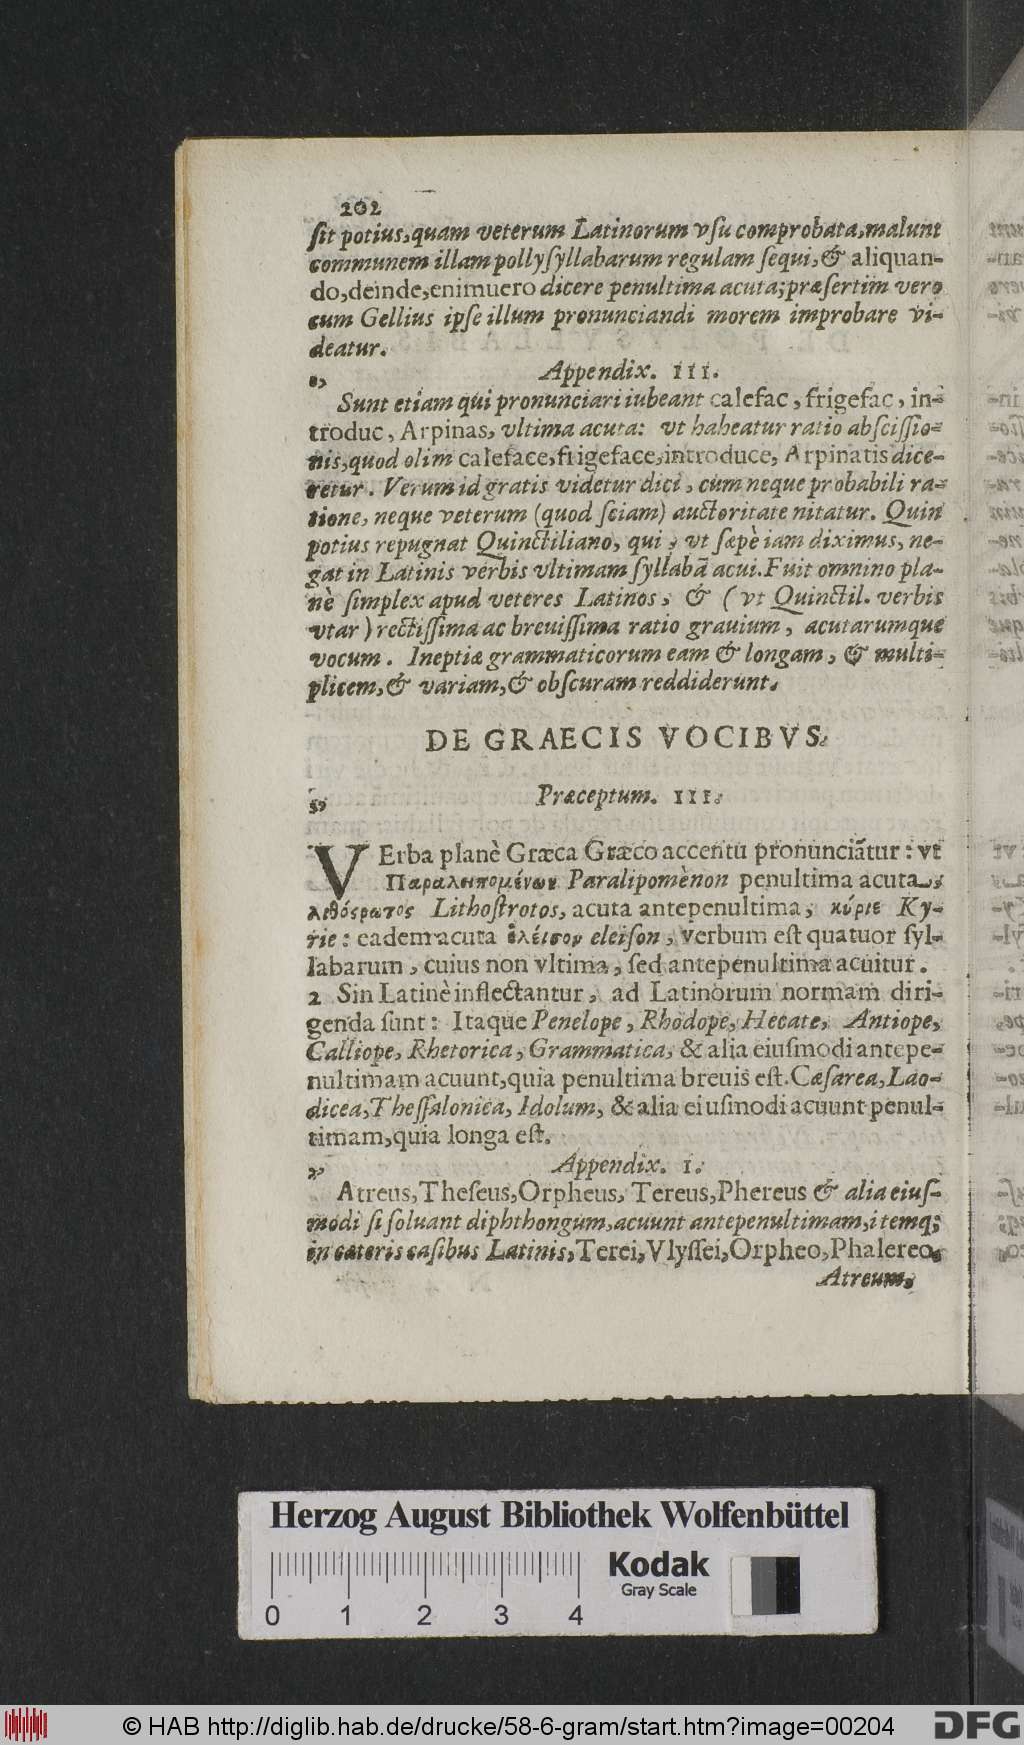 202
sit potius, quam veterum Latinorum vsu comprobata, malunt
communem illam pollysyllabarum regulam sequi, & aliquan-
do, deinde, enimuero dicere penultima acuta; præsertim vero
cum Gellius ipse illum pronunciandi morem improbare vi-
deatur.
Appendix. III.
Sunt etiam qui pronunciari iubeant calefac, frigefac, in-
troduc, Arpinas, vltima acuta: vt habeatur ratio abscissio-
nis, quod olim caleface, frigeface, introduce, Arpinatis dice-
retur. Verum id gratis videtur dici, cum neque probabili ra-
tione, neque veterum (quod sciam) auctoritate nitatur. Quin
potius repugnat Quinctiliano, qui, vt sæpè iam diximus, ne-
gat in Latinis verbis vltimam syllabã acui. Fuit omnino pla-
nè simplex apud veteres Latinos, & (vt Quinctil. verbis
vtar) rectissima ac breuissima ratio grauium, acutarumque
vocum. Ineptiæ grammaticorum eam & longam, & multi-
plicem, & variam, & obscuram reddiderunt.
DE GRAECIS VOCIBVS.
Præceptum. III.
VErba planè Græca Græco accentu pronunciãtur: vt
Παραλειπομένων Paralipomènon penultima acuta,
λιθόςρωτος Lithostrotos, acuta antepenultima, κύριε Ky-
rie: eadem acuta ἐλέισον eleison, verbum est quatuor syl-
labarum, cuius non vltima, sed antepenultima acuitur.
2 Sin Latinè inflectantur, ad Latinorum normam diri-
genda sunt: Itaque Penelope, Rhodope, Hecate, Antiope,
Calliope, Rhetorica, Grammatica, & alia eiusmodi antepe-
nultimam acuunt, quia penultima breuis est. Cæsarea, Lao-
dicea, Thessalonica, Idolum, & alia eiusmodi acuunt penul-
timam, quia longa est.
Appendix. I.
Atreus, Theseus, Orpheus, Tereus, Phereus & alia eius-
modi si soluant diphthongum, acuunt antepenultimam, itemq;
in cæteris casibus Latinis, Terei, Vlyssei, Orpheo, Phalereo,
Atreum,
Herzog August Bibliothek Wolfenbüttel
Kodak
Gray Scale
0 1 2 3 4
© HAB http://diglib.hab.de/drucke/58-6-gram/start.htm?image=00204
DFG